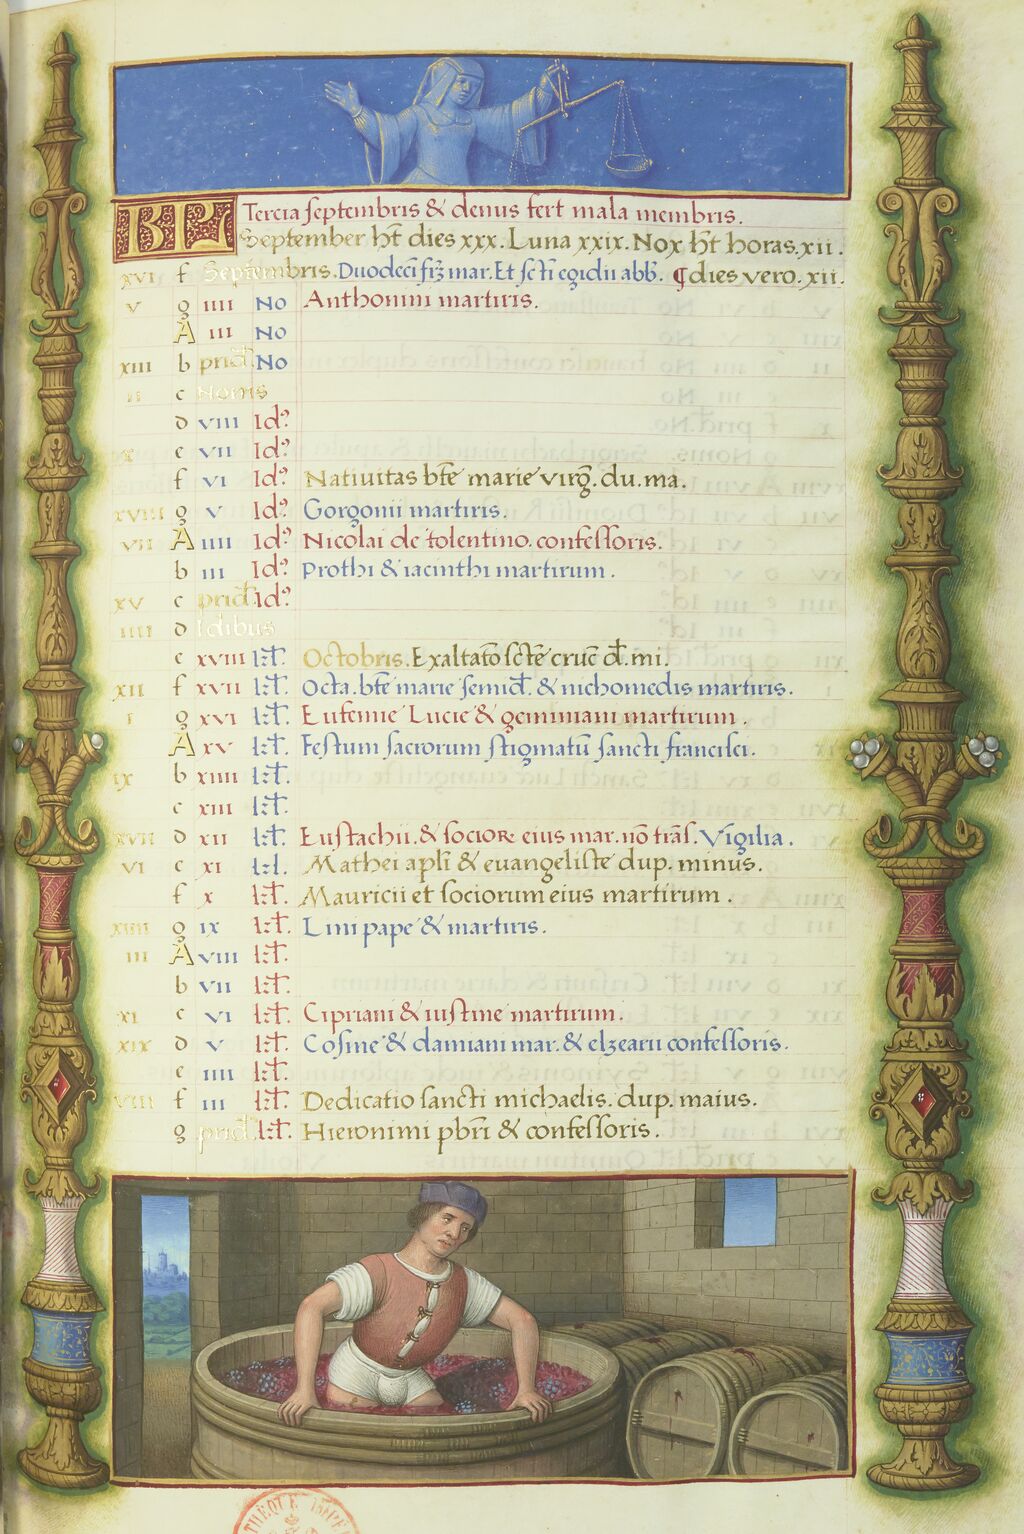 KL Tercia septembris & denus fert mala membris.
September ht dies xxx. Luna xxix. Nox ht horas. xii.
xvi f Septembris. Duodeci mar. Et scti egidii abb. ¶ dies vero. xii.
v g iiii No Anthonini martiris.
A iii No
xiii b prid. No
ii c Nonis
d viii Id?
x e vii Id?
f vi Id? Natiuitas bte marie virg. du. ma.
xviii g v Id? Gorgonii martiris.
vii A iiii Id? Nicolai de tolentino. confessoris.
b iii Id? Prothi & iacinthi martirum.
xv c prid. Id?
iiii d Idibus
e xviii kt. Octobris. Exaltato scte cruc d. mi.
xii f xvii kt. Octa. bte marie semid. & nichomedis martiris.
i g xvi kt. Eufemie Lucie & geminiani martirum.
A xv kt. Festum sacrorum stigmatu sancti francisci.
ix b xiiii kt.
c xiii kt.
xvii d xii kt. Eustachii. & socior eius mar. no tras. Vigilia.
vi e xi kl. Mathei apli & euangeliste dup. minus.
f x kt. Mauricii et sociorum eius martirum.
xiiii g ix kt. Lini pape & martiris.
iii A viii kt.
b vii kt.
xi c vi kt. Cipriani & iustine martirum.
xix d v kt. Cosme & damiani mar. & elzearii confessoris.
e iiii kt.
viii f iii kt. Dedicatio sancti michaelis. dup. maius.
g prid. kt. Hieronimi pbri & confessoris.